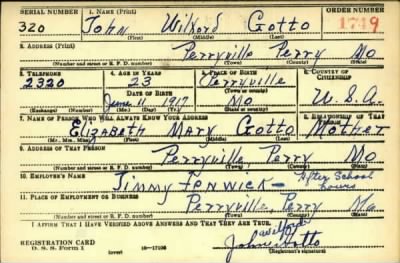 SERIAL NUMBER 1. NAME (Print) ORDER NUMBER
320 John Wilford Gotto 1749
(First) (Middle) (Last)
2. ADDRESS (Print)
Perryville Perry Mo
(Number and street or R. F. D. number) (Town) (County) (State)
3. TELEPHONE 4. AGE IN YEARS 5. PLACE OF BIRTH 6. COUNTRY OF CITIZENSHIP
2320 23 Perryville
DATE OF BIRTH (Town or county)
June 11 1917 Mo U.S.A.
(Exchange) (Number) (Mo.) (Day) (Yr.) (State or country)
7. NAME OF PERSON WHO WILL ALWAYS KNOW YOUR ADDRESS 8. RELATIONSHIP OF THAT PERSON
Elizabeth Mary Gotto Mother
(Mr., Mrs., Miss) (First) (Middle) (Last)
9. ADDRESS OF THAT PERSON
Perryville, Perry Mo
(Number and street or R. F. D. number) (Town) (County) (State)
10. EMPLOYER'S NAME
Jimmy Fenwick - After School hours
11. PLACE OF EMPLOYMENT OR BUSINESS
Perryville, Perry Mo
(Number and street or R. F. D. number) (Town) (County) (State)
I AFFIRM THAT I HAVE VERIFIED ABOVE ANSWERS AND THAT THEY ARE TRUE.
REGISTRATION CARD
D. S. S. Form 1 (over) 16-17105 John Wilford Gotto
(Registrant's signature)